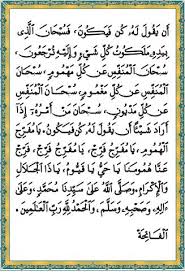 أَن يَقُولَ لَهُ كُن فَيَكُونُ، فَسُبْحَانَ الَّذِي
بِيَدِهِ مَلَكُوتُ كُلِّ شَيْءٍ وَإِلَيْهِ تُرْجَعُونَ،
سُبْحَانَ الْمُنَفِّسِ عَنْ كُلِّ مَهْمُومٍ، سُبْحَانَ
الْمُنَفِّسِ عَنْ كُلِّ مَغْمُومٍ، سُبْحَانَ الْمُنَفِّسِ
عَنْ كُلِّ مَدْيُونٍ، سُبْحَانَ مَنْ أَمْرُهُ إِذَا
أَرَادَ شَيْئًا أَن يَقُولَ لَهُ كُن فَيَكُونُ، يَا مُفَرِّجُ
فَرِّجْ، يَا مُفَرِّجُ فَرِّجْ، يَا مُفَرِّجُ فَرِّجْ،
عَنَّا هُمُومَنَا يَا حَيُّ يَا قَيُّومُ، يَا ذَا الْجَلَالِ
وَالْإِكْرَامِ، وَصَلَّى اللهُ عَلَى سَيِّدِنَا مُحَمَّدٍ، وَعَلَى
آلِهِ، وَصَحْبِهِ، وَسَلَّمَ، وَالْحَمْدُ لِلَّهِ رَبِّ الْعَالَمِينَ،
الْفَاتِحَة